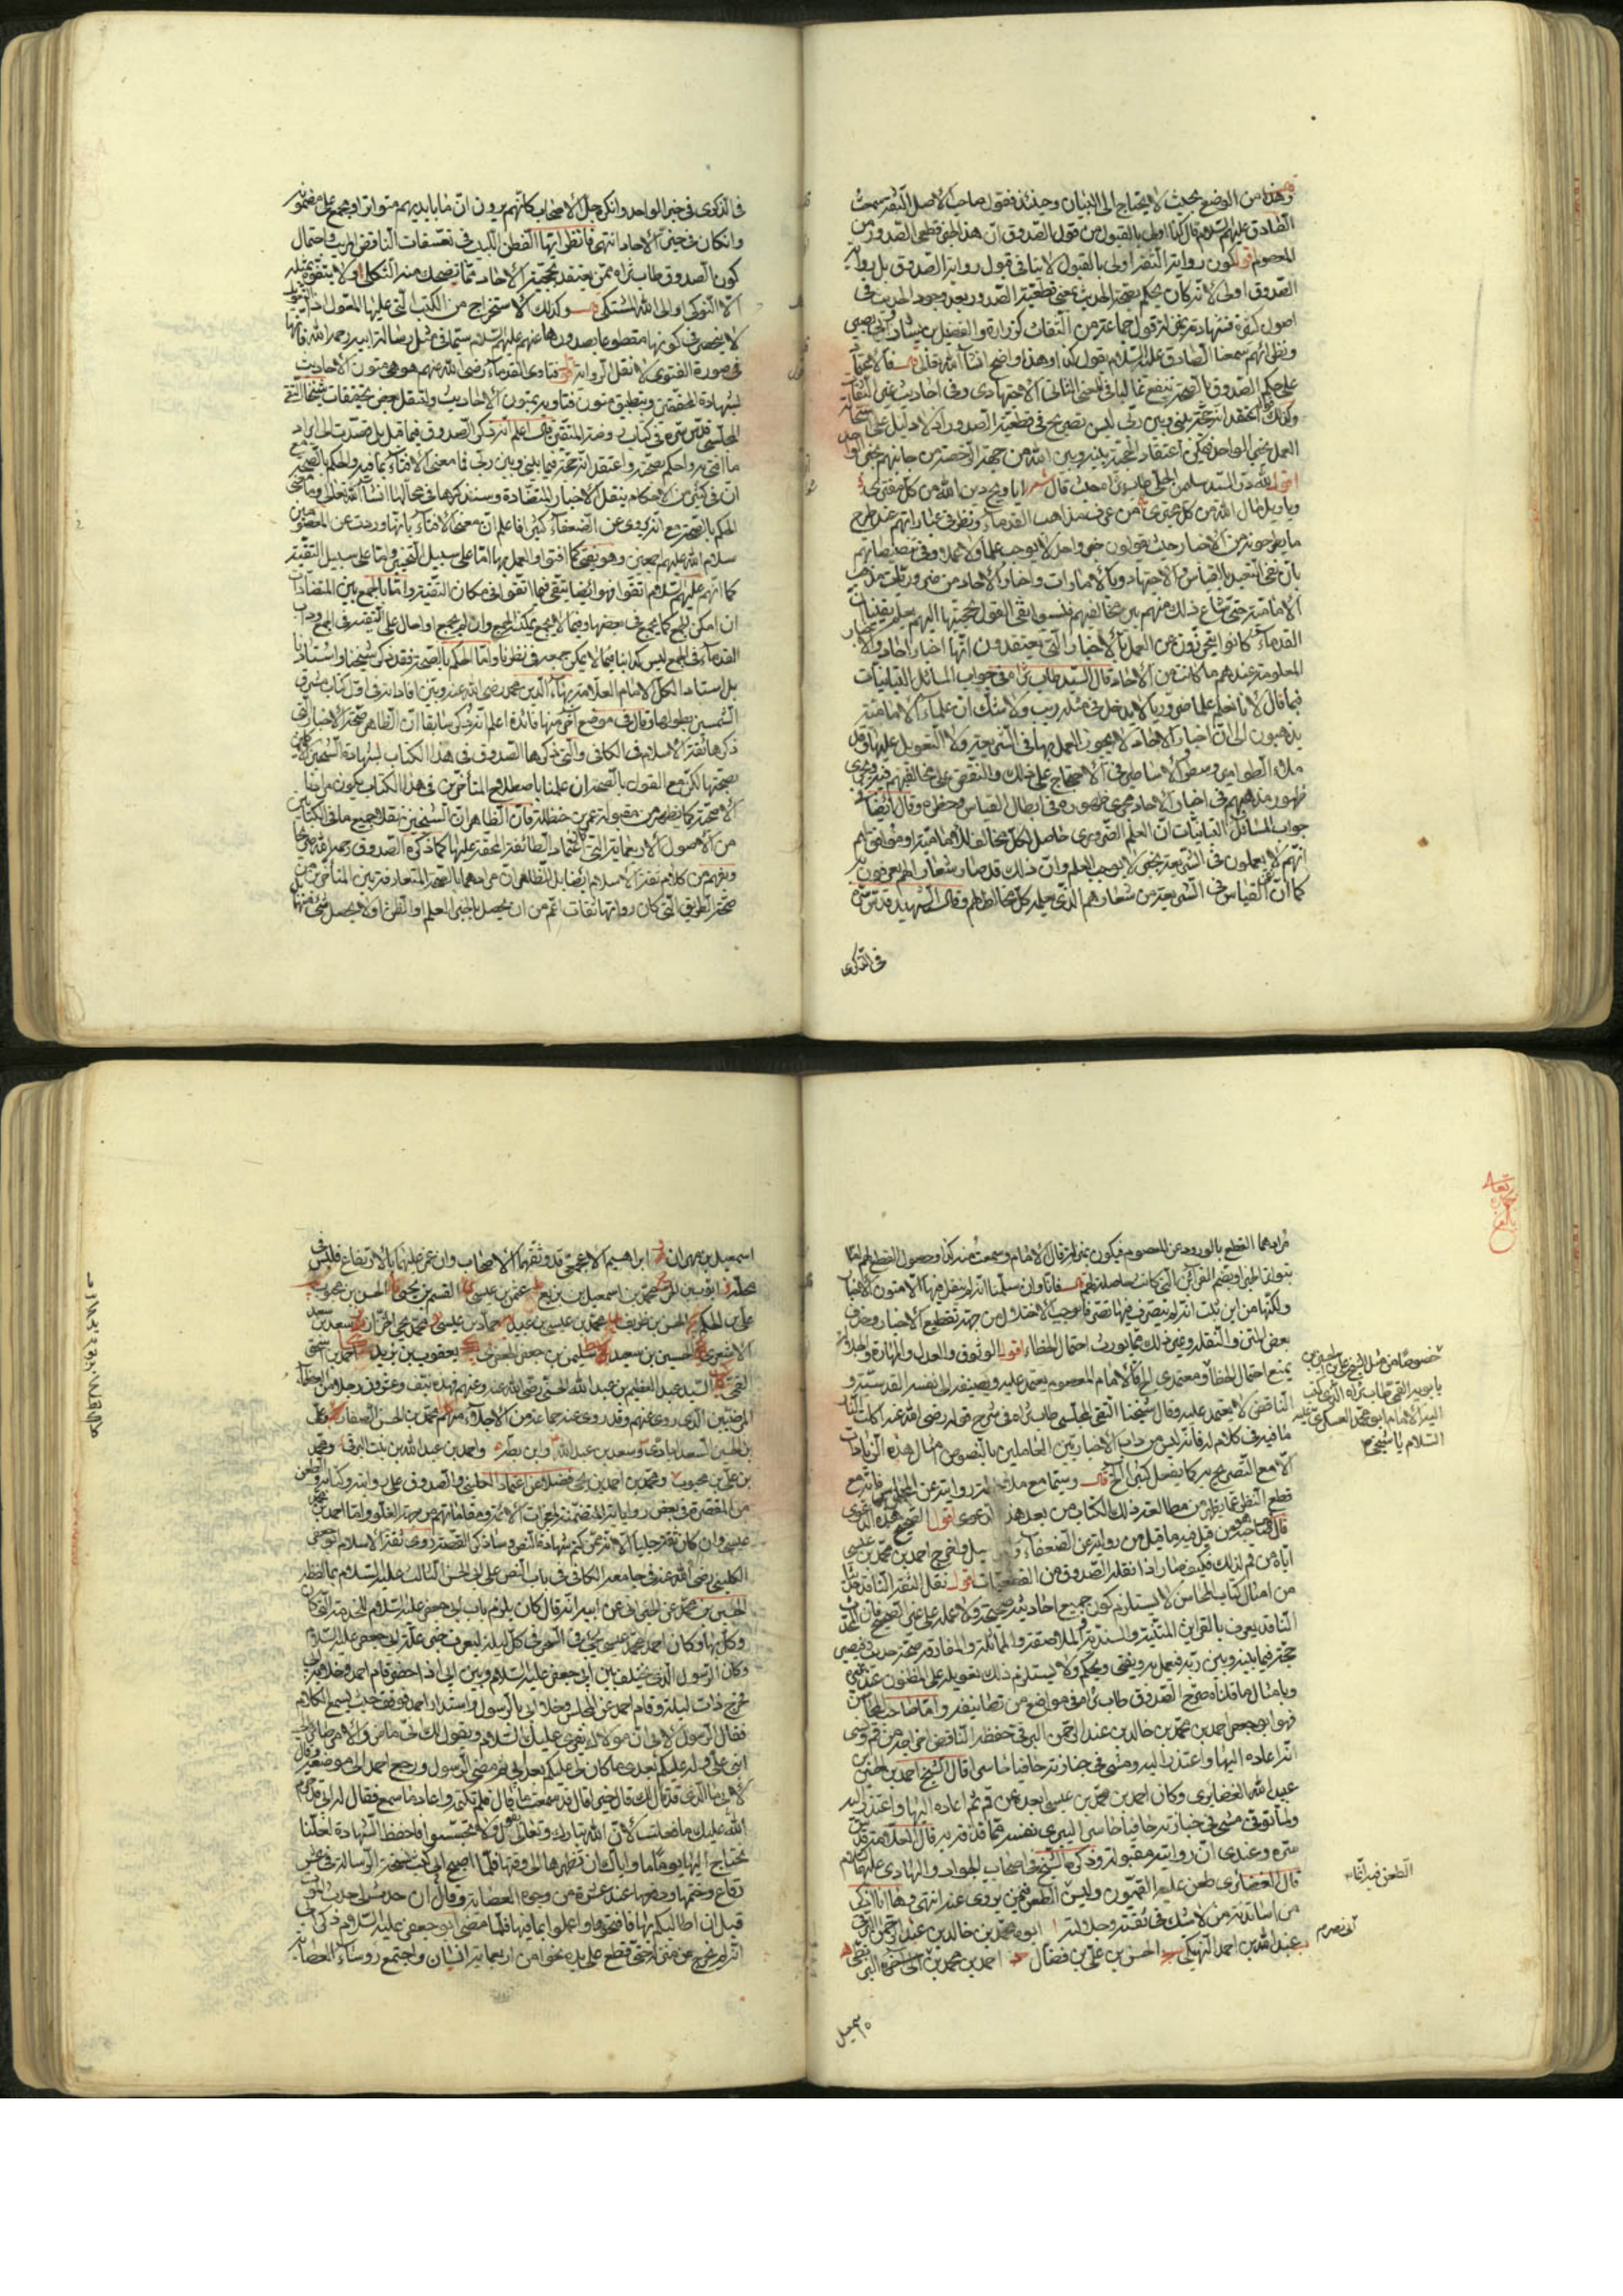 وهذا من الوضوح بحيث لا يحتاج الى البيان وحينئذ فقول صاحب الاصل الثقة سمعت
الصادق عليه السلام قال كذا اولى بالقبول من قول الصدوق ان هذا الخبر قطعي الصدور من
المعصوم اقول كون رواية الثقة اولى بالقبول لا ينافي قبول رواية الصدوق بل رواية
الصدوق اولى لانه كان يحكم بصحة الحديث بمعنى قطعية الصدور بعد وجود الحديث في
اصول كثيرة فشهادته بمنزلة قول جماعة من الثقات كزرارة والفضيل بن يسار وابي بصير
ونظرائهم سمعنا الصادق عليه السلام يقول كذا وهذا واضح انشاء الله قال فالاعتماد
على حكم الصدوق بالصحة ينفع غالبا في المعنى الثاني الاجتهادي وفي احاديث غير الثقات
وكذلك قوله اعتقد انه حجة بيني وبين ربي ليس بصريح في قطعية الصدور اذ لا دليل على استحالة
العمل بخبر الواحد فيمكن اعتقاد الحجية بينه وبين الله من جهة الرخصة من جانبهم بخبر الواحد
اقول لله در السيد سليمن الحلي طاب ثراه حيث قال شعر ايا ويح دين الله من كل مفتر
ويا ويل مال الله من كل مجتري من عرف مذاهب القدماء ونظر في عباراتهم عند طرح
ما يطرحونه من الاخبار حيث يقولون خبر واحد لا يوجب علما ولا عملا وفي تنصيصاتهم
بان نفي التعبد بالقياس والاجتهاد وبالامارات واخبار الآحاد من ضروريات مذهب
الامامية حتى شاع ذلك منهم بين مخالفيهم فنسبوا نفي القول بحجيتها اليهم يعلم يقينا ان
القدماء كانوا يتحرزون من العمل بالاخبار التي يعتقدون انها اخبار آحاد والاخبار
المعلومة عندهم ما كانت من الآحاد قال السيد طاب ثراه في جواب المسائل التبانيات
فيما قال لانا نعلم علما ضروريا لا يدخل في مثله ريب ولا شك ان علماء الامامية
يذهبون الى ان اخبار الآحاد لا يجوز العمل بها في الشريعة ولا التعويل عليها وقد
ملأوا الطوامير وسطروا الاساطير في الاحتجاج على ذلك والنقض على مخالفيهم فيه ويجري
ظهور مذهبهم في اخبار الآحاد مجرى ظهوره في ابطال القياس وحظره وقال ايضا في
جواب المسائل التبانيات ان العلم الضروري حاصل لكل مخالف للامامية او موافق لهم
انهم لا يعملون في الشريعة بخبر لا يوجب العلم وان ذلك قد صار شعارا لهم يعرفون به
كما ان نفي القياس في الشريعة من شعارهم الذي يعلمه كل مخالط لهم وقال الشهيد قدس سره
في الذكرى
في الذكرى في خبر الواحد وانكره جل الاصحاب كانهم يرون ان ما بايديهم متواتر او مجمع على مضمونه
وان كان في حيز الآحاد انتهى فانظر ايها الفطن اللبيب في تعسفات الناقض المريب واحتمال
كون الصدوق طاب ثراه ممن يعتقد بحجية الآحاد مما يضحك منه الثكلى ولا يتفوه بمثله
الا النوكى والى الله المشتكى وكذلك الاستخراج من الكتب التي عليها المعول
لا ينحصر في كونها مقطوعا بصدورها عنهم عليهم السلام سيما في مثل رسالة ابيه رحمه الله فانها
في صورة الفتوى لا نقل الرواية فتاوى القدماء رضي الله عنهم هو هي متون الاحاديث
بشهادة المحققين وبتطبيق متون فتاويهم بمتون الاحاديث ولننقل بعض تحقيقات شيخنا التقي
المجلسي قدس سره في كتاب روضة المتقين قال اعلم انه ذكر الصدوق فيما قبل بل قصدت الى ايراد
ما افتي به واحكم بصحته واعتقد انه حجة فيما بيني وبين ربي فما معنى الافتاء بما فيه والحكم بالصحة مع
ان في كثير من الاحكام ينقل الاخبار المتضادة وسنذكرها في محالها انشاء الله تعالى وما معنى
الحكم بالصحة مع انه يروي عن الضعفاء كثيرا فاعلم ان معنى الافتاء بانها وردت عن المعصومين
سلام الله عليهم اجمعين وهو يفتي كما افتوا والعمل بها اما على سبيل التخيير واما على سبيل التقية
كما انهم عليهم السلام اتقوا فهو ايضا يتقي فيما اتقوا في مكان التقية واما بالجمع بين المتضادات
ان امكن الجمع كما يجمع في بعضها وفيما لا يجمع يمكنك الجمع وان لم يجمع او احال على التقية
القدماء في الجمع ليس كدأبنا فيما لا يمكن جمعه في نظرنا واما الحكم بالصحة فقد ذكر شيخنا واستادنا
بل استاد الكل الامام العلامة بهاء الدين محمد رضي الله عنه وبين افاداته في اول كتاب مشرق
الشمسين بطولها وقال في موضع آخر منها فائدة اعلم انه ذكر سابقا ان الظاهر صحة الاخبار التي
ذكرها ثقة الاسلام في الكافي والتي ذكرها الصدوق في هذا الكتاب لشهادة الشيخين
بصحتها لكن مع القول بالصحة ان علمنا باصطلاح المتأخرين في هذا الكتاب يكون مراعيا
الاصحة كما يظهر من مقبولة عمر بن حنظلة فان الظاهر ان الشيخين نقلا جميع ما في الكتابين
من الاصول الاربعماية التي كان اعتماد الطائفة المحقة عليها كما ذكره الصدوق رحمه الله صريحا
ويفهم من كلام ثقة الاسلام ايضا بل الظاهر ان مرادهما بالصحة المتعارفة بين المتأخرين من
صحة الطريق التي كان رواتها ثقات اعم من ان يحصل بالخبر العلم او الظن او لا يحصل شيء منهما
مرادهما القطع بالورود عن المعصوم فيكون بمنزلة قال الامام وسمعت منه كذا وحصول القطع لهم اما
بتواتر الخبر او بضم القرائن التي كانت حاصلة لهم فانا وان سلمنا انه لم ينقل فيها الا متون الاخبار
ولكنها من اين ثبت انه لم يتصرف فيها تصرفا يوجب الاختلال من جهة تقطيع الاخبار وحذف
بعض المتن والنقل وغير ذلك مما يورث احتمال الخطاء اقول الوثوق والعدل والمهارة
يمنع احتمال الخطأ ومعتمدي الامام المعصوم يعتمد عليه ويضيفه الى نفسه القدسية و
الناقض لا يعتمد عليه وقال شيخنا التقي المجلسي طاب ثراه في شرح قوله رضي الله عنه
ما فيه في كلام له فانه ليس من داب الاخباريين العاملين بالنصوص امثال هذه الزيادات
الا مع التصريح به كما يفعل كثيرا الخ قال وسيما مع ملاحظة روايته عن المحاسن فانه مع
قطع النظر عما يظهر من مطالعة ذلك الكتاب من بعد هذه الدعوى اقول الصحيح هذه الدعوى
قال فصاحبه هو من قيل فيه ما قيل من روايته عن الضعفاء واخرج احمد بن محمد بن عيسى
اياه من قم لذلك فكيف صار اذا نقله الصدوق من القطعيات اقول نقل الثقة الناقد
من امثال كتاب المحاسن لا يستلزم كون جميع احاديثه صحيحة ولا عمله على غير الصحيح فان المحدث
الناقد يعرف بالقراين المتنية والسندية والملاصقة والمماثلة والمفارقة صحة حديث فيصير
حجة فيما بينه وبين ربه فيعمل به ويفتي ويحكم ولا يستلزم ذلك تعويله على المظنون عند غيره
وبامثال ما قلناه صرح الصدوق طاب ثراه في مواضع من تصانيفه واما صاحب المحاسن
فهو ابو جعفر احمد بن محمد بن خالد بن عبد الرحمن البرقي حفظ الناقض اخراجه من قم ونسي
انه اعاده اليها واعتذر اليه ومشى في جنازته حافيا حاسرا قال الشيخ احمد بن الحسين بن
عبيد الله الغضائري وكان احمد بن محمد بن عيسى ابعده عن قم ثم اعاده اليها واعتذر اليه
ولما توفي مشى في جنازته حافيا حاسرا ليبري نفسه مما قذفه به قال العلامة قدس
سره وعندي ان روايته مقبولة وذكره الشيخ في اصحاب الجواد والهادي عليهما السلام
قال الغضائري طعن عليه القميون وليس الطعن فيمن يروي عنه انتهى وها انا اذكر
من اساتذته من لا شك في ثقته وجلالته ابوه محمد بن خالد بن عبد الرحمن البرقي
عبد الله بن احمد النهيكي الحسن بن علي بن فضال احمد بن محمد بن ابي نصر البزنطي
خصوصا من مثل الشيخ علي بن الحسين بن
بابويه القمي طاب ثراه الذي كتب
اليه الامام ابو محمد العسكري عليه
السلام يا شيخي
الطعن فيه انما
اسمعيل
اسمعيل بن مهران ابراهيم الاعجمي قد وثقهما الاصحاب وان غمز عليهما بالارتفاع فليس في
محله ايوب بن نوح محمد بن اسمعيل بن بزيع عثمن بن عيسى القسم بن يحيى الحسن بن محبوب
علي بن الحكم الحسن بن ظريف محمد بن عيسى بن عبيد حماد بن عيسى محمد بن يحيى الخزاز سعد بن سعد
الاشعري الحسين بن سعيد سليمن بن جعفر الجعفري يعقوب بن يزيد احمد بن اسحق
القمي السيد عبد العظيم بن عبد الله الحسني رضي الله عنه وعنهم فهذه نيف وعشرون رجلا من العظماء
المرضيين الذي روى عنهم وقد روى عنه جماعة من الاجلاء منهم محمد بن الحسن الصفار وعلي
بن الحسين السعدابادي وسعد بن عبد الله وابن بطة واحمد بن عبد الله بن بنت البرقي ومحمد
بن علي بن محبوب ومحمد بن احمد بن يحيى فضلا عن اعتماد الكليني والصدوق على رواياته وكتابه والطعن
من المقصرة في بعض رواياته المتضمنة لغرائب الائمة ومقاماتهم من جهة الغلو واما احمد بن محمد بن
عيسى وان كان ثقة جليلا الا انه ممن كتم شهادة النص وساذكر القصة روى ثقة الاسلام ابو جعفر
الكليني رضي الله عنه في جامعه الكافي في باب النص على ابي الحسن الثالث عليه السلام ما لفظه
الحسين بن محمد عن الخيراني عن ابيه انه قال كان يلزم باب ابي جعفر عليه السلام للخدمة التي كان
وكل بها وكان احمد بن محمد بن عيسى يجيء في السحر في كل ليلة ليعرف خبر علة ابي جعفر عليه السلام
وكان الرسول الذي يختلف بين ابي جعفر عليه السلام وبين ابي اذا حضر قام احمد وخلا به ابي
فخرج ذات ليلة وقام احمد عن المجلس وخلا ابي بالرسول واستدار احمد فوقف حيث يسمع الكلام
فقال الرسول لابي ان مولاك يقرئ عليك السلام ويقول لك اني ماض والامر صائر الى
ابني علي وله عليكم بعدي ما كان لي عليكم بعد ابي ثم مضى الرسول ورجع احمد الى موضعه وقال
لابي ما الذي قد قال لك قال خيرا قال قد سمعت ما قال فلم تكتمه واعاد ما سمع فقال له ابي قد حرم
الله عليك ما فعلت لان الله تبارك وتعالى يقول ولا تجسسوا فاحفظ الشهادة لعلنا
نحتاج اليها يوما ما واياك ان تظهرها الى وقتها فلما اصبح ابي كتب نسخة الرسالة في عشر
رقاع وختمها ودفعها عند عشرة من وجوه العصابة وقال ان حدث بي حدث الموت
قبل ان اطالبكم بها فافتحوها واعملوا بما فيها فلما مضى ابو جعفر عليه السلام ذكر ابي
انه لم يخرج من منزله حتى قطع على يديه نحو من اربعماية انسان واجتمع رؤساء العصابة